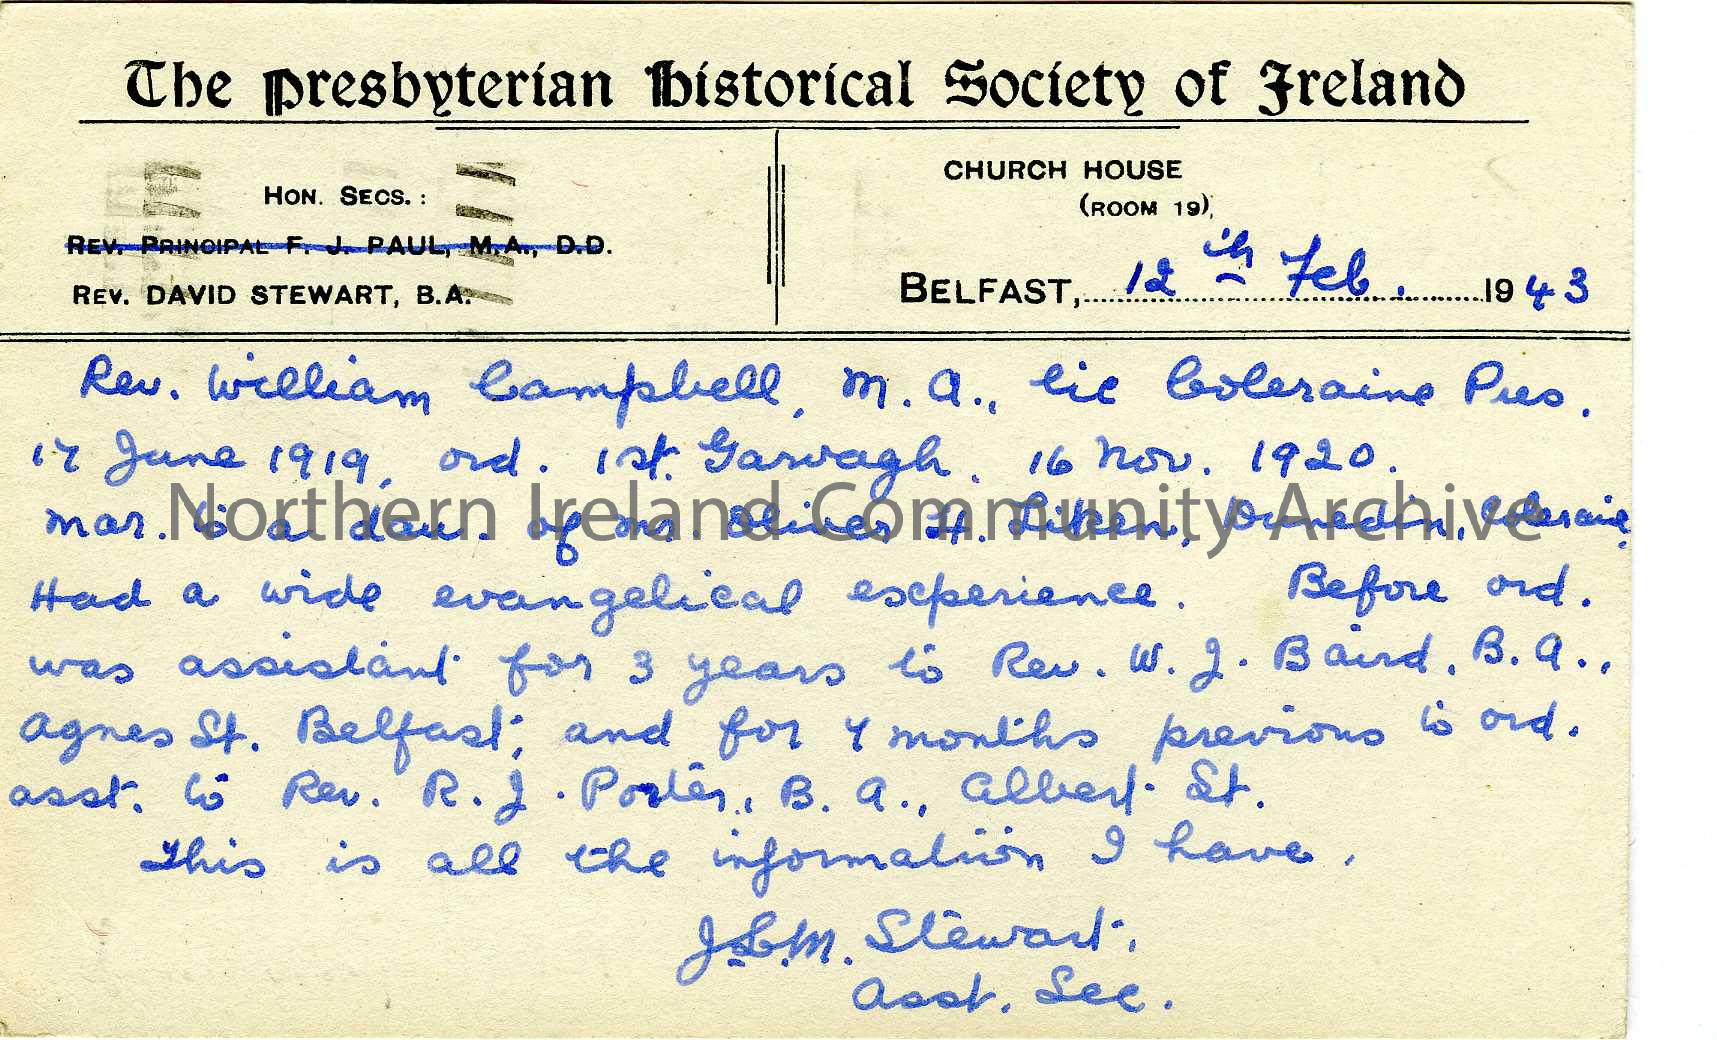 The Presbyterian Historical Society of Ireland
HON. SECS.:
REV. PRINCIPAL F. J. PAUL, M.A., D.D.
REV. DAVID STEWART, B.A.
CHURCH HOUSE
(ROOM 19),
BELFAST, 12th Feb. 1943
Rev. William Campbell, M.A., lic Coleraine Pres.
17 June 1919, ord. 1st. Garvagh. 16 Nov. 1920.
mar. to a dau. of Mr. Oliver H. Liken, Dunedin, Coleraine.
Had a wide evangelical experience. Before ord.
was assistant for 3 years to Rev. W. J. Baird, B.A.,
Agnes St. Belfast, and for 7 months previous to ord.
asst. to Rev. R. J. Porter, B.A., Albert St.
This is all the information I have.
Stewart,
Asst. Sec.
Northern Ireland Community Archive